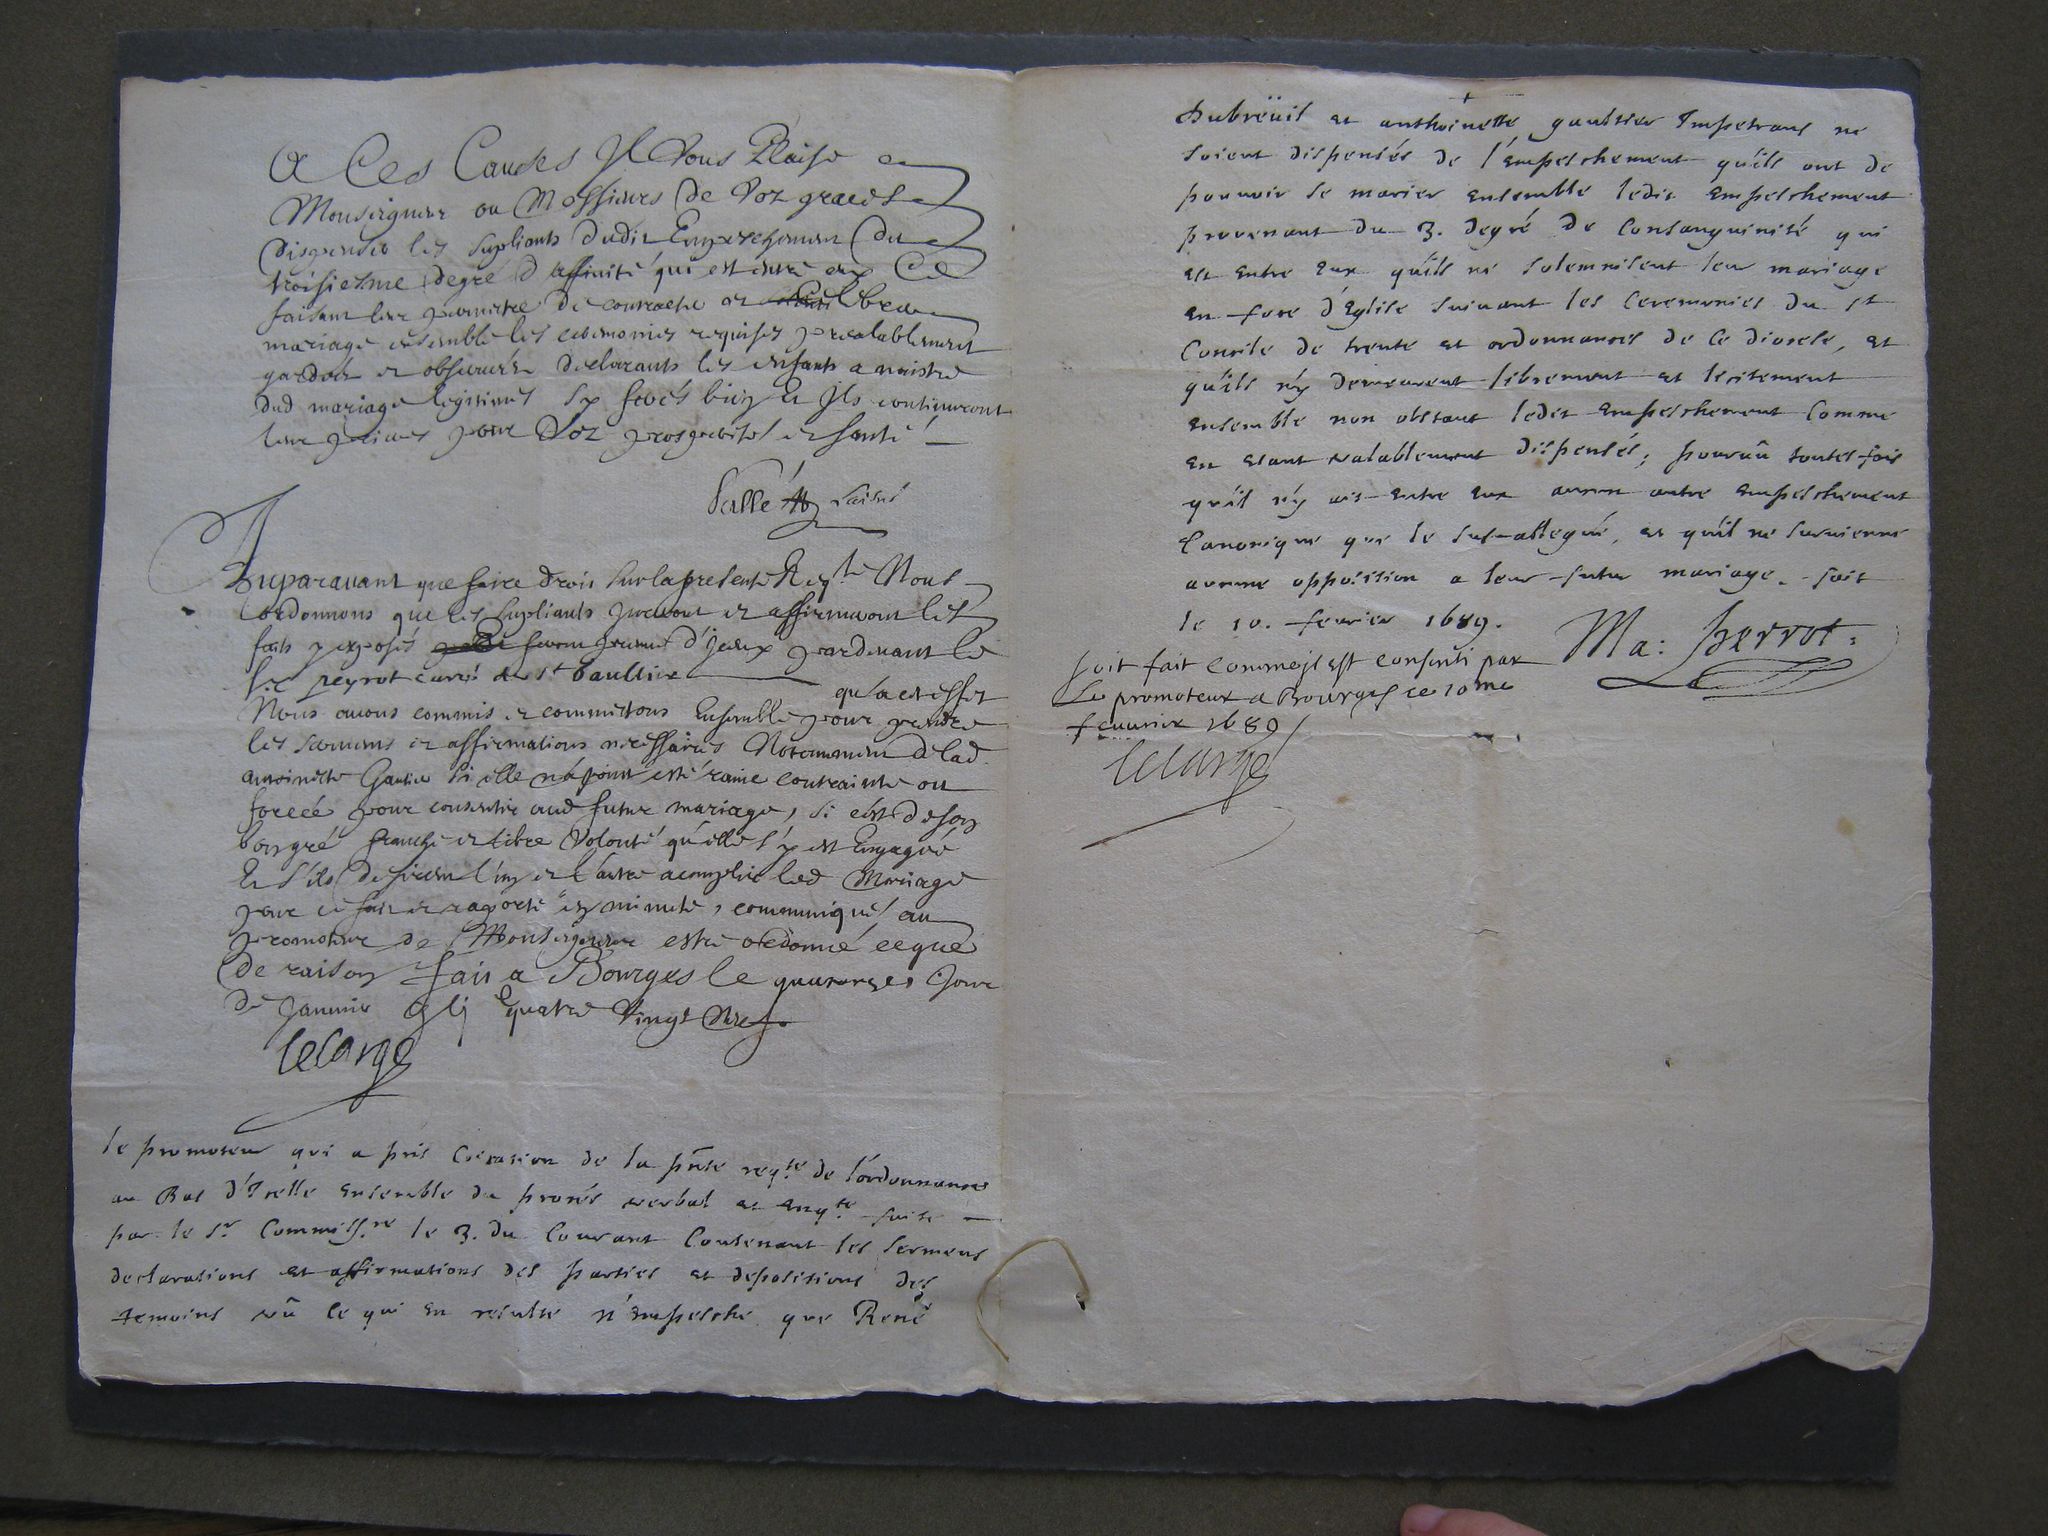 A Ces Causes Il Vous Plaise
Monseigneur ou Messieurs De Voz graces
Dispenser les supliants dudit Empeschement du
troisiezme degré d'affinité qui est entre eux Ce
faisant leur permettre de contracter et celebrer
mariage ensemble les ceremonies requises prealablement
gardées et observées declarants les enfants a naistre
dud mariage legitimes Sy ferés bien et Ils continuront
leur prieres pour Voz prosperités et santé
Auparavant que faire droit sur la presente Reqte Nous
ordonnons que les supliants jureront et affirmeront les
faits y exposés d'jceux pardevant le
Sr peyrot curé de St Baultire
qu'a cet effet
Nous avons commis et commettons Ensemble pour prendre
les serments et affirmations necessaires Notemment de lad
antoinette Gautier si elle n'a point esté ravie contrainte ou
forcée pour consentir aud futur mariage, si c'est de son
bon gré franche et libre Volonté qu'elle s'y est Engagée
Et s'ils desirent l'un et l'autre acomplir led Mariage
pour ce fait et raporté en minute, communiqué au
promoteur de Monseigneur estre ordonné ce que
de raison fait a Bourges le quatorze Jour
de Janvier quatre Vingt neuf
lelarge
le promoteur qui a pris Co'cation de la pñte reqte de l'ordonnance
au Bas d'Icelle ensemble du procés verbal et enqte faite
par le Sr Commissre le 3. du Courant Contenant les sermens
declarations et affirmations des parties et depositions des
temoins vû ce qui en resulte n'empesche que René
Dubreüil et anthoinette gaultier Impetrans ne
soient dispensés de l'empeschement qu'ils ont de
pouvoir se marier ensemble ledit empeschement
provenant du 3. degré de Consanguinité qui
est entre eux qu'ils ne solemnisent leur mariage
en face d'Eglise suivant les Ceremonies du st
Concile de trente et ordonnances de ce diocese, et
qu'ils n'y demeurent librement et licitement
ensemble non obstant ledit empeschement Comme
en etant valablement dispensés; pourvû toutesfois
qu'il n'y ait entre eux aucun autre empeschement
Canonique que le sus-allegué, et qu'il ne survienne
aucune opposition a leur futur mariage. fait
le 10. fevrier 1689.
Ma: perrot:
soit fait comme jl est consenti par
Le promoteur a Bourges ce 10me
feuvrier 1689
lelarge